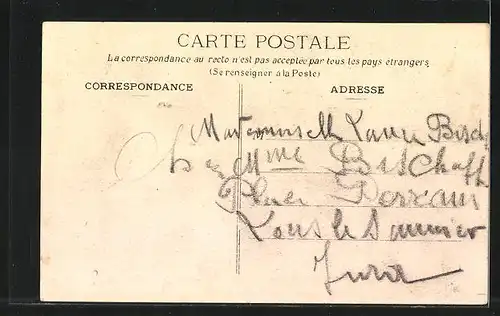 CARTE POSTALE
La correspondance au recto n'est pas acceptée par tous les pays étrangers
(Se renseigner à la Poste)
CORRESPONDANCE
ADRESSE
Mademoiselle Bisch
Chez Mme Bischoff
Place
Lons le Saunier
Jura